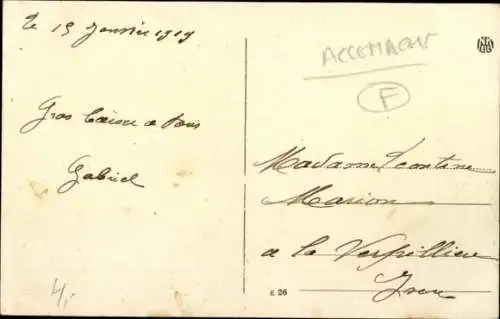 le 19 Janvier 1919
Gros baiser a tous
Gabriel
4,-
ALLEMAGNE
F
Madame Leontine
Marion
a la Verpilliere
Isere
E 26